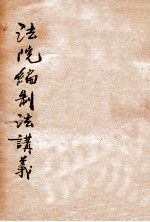 法院編制法講義